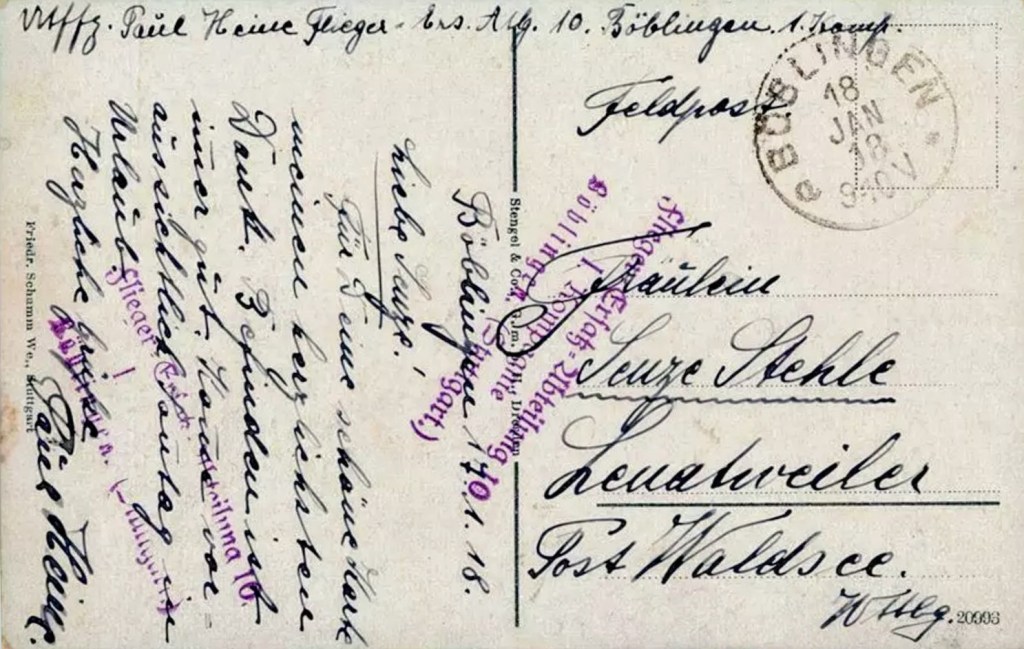 Uffz. Paul Heine Flieger-Ers. Abtg. 10. Böblingen. 1. Komp.
Feldpost
BÖBLINGEN
18
JAN
18
9-10V
Fräulein
Senze Stehle
Lenatweiler
Post Waldsee.
Wttbg.
20993
Flieger-Ersatz-Abteilung 10
1. Kompanie
Böblingen (Stuttgart)
Stengel & Co., G.m.b.H., Dresden
Böblingen 17.1.18.
Liebe Senze!
Für Deine schöne Karte
meinen herzlichsten
Dank. Befinden ist
immer gut. Komme vor
aussichtlich Sonntag in
Urlaub.
Herzliche Grüße
Paul Heine.
Flieger-Ersatz-Abteilung 10.
Böblingen.
Friedr. Schumm We., Stuttgart